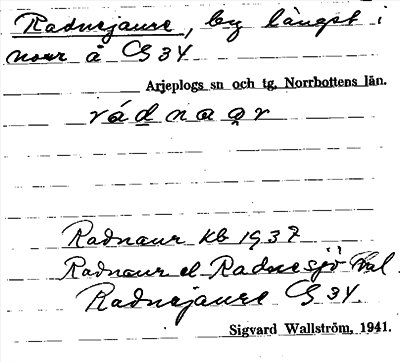 Radnejaure, by längst i
norr å GS 34
Arjeplogs sn och tg, Norrbottens län.
rádnaar
Radnaur kb 1937
Radnaur el Radnesjö
Radnejaure GS 34.
Sigvard Wallström, 1941.